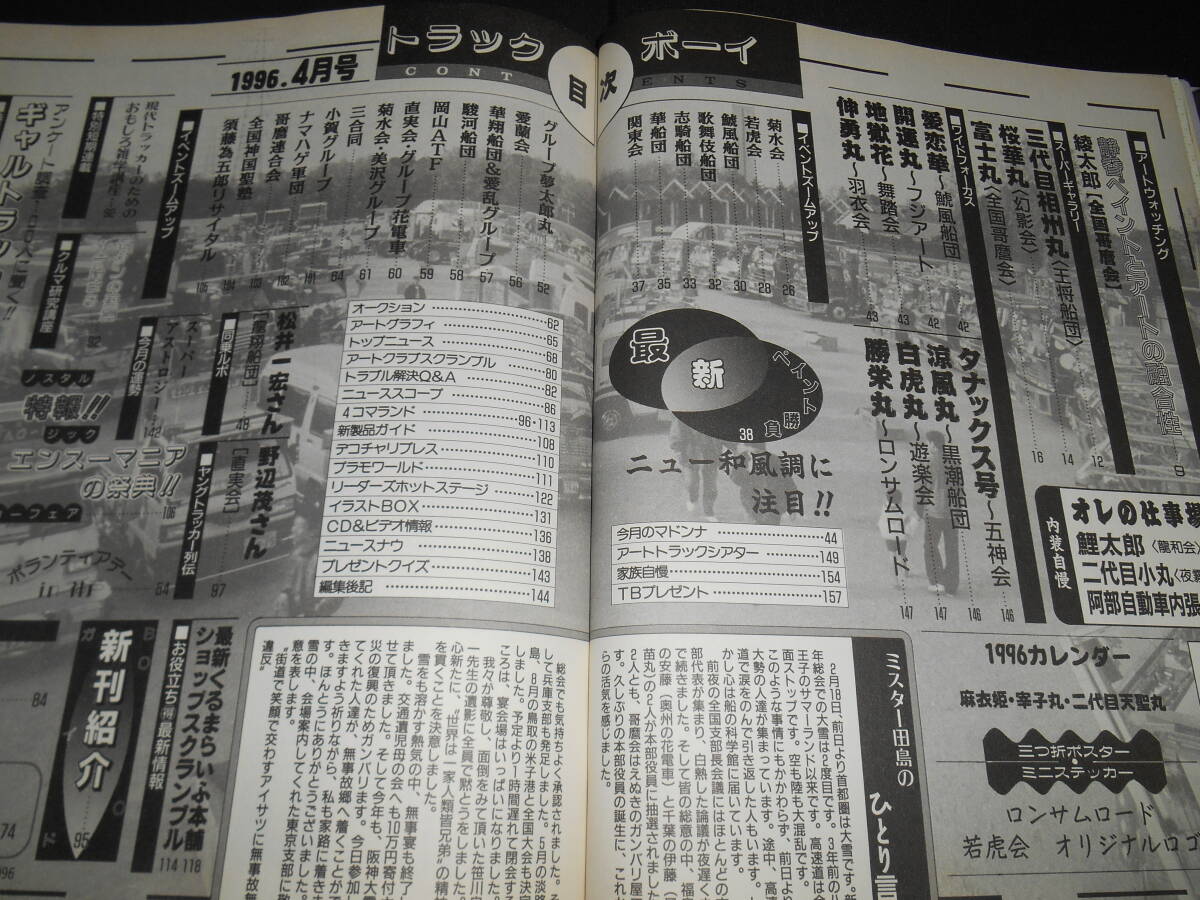 トラック ボーイ
CONTENTS
目次
1996.4月号
■アートウォッチング
綾太郎 [全国哥麿会]
8
■スーパーギャラリー
三代目相州丸〈王将船団〉 12
桜華丸〈幻影会〉 14
富士丸〈全国哥麿会〉 16
■ワイドフォーカス
愛恋華〜鯱風船団 42
開運丸〜フジアート 42
地獄花〜舞踏会 43
伸勇丸〜羽衣会 43
タナックス号〜五神会 146
涼風丸〜黒潮船団 146
白虎丸〜遊楽会 147
勝栄丸〜ロンサムロード 147
オレの仕事場
内装自慢
鯉太郎〈龍和会〉
二代目小丸〈夜
阿部自動車内張
■イベントズームアップ
菊水会 26
若虎会 28
鯱風船団 30
歌舞伎船団 32
志騎船団 33
華船団 35
関東会 37
最新ペイント勝負 38
ニュー和風調に
注目!!
今月のマドンナ 44
アートトラックシアター 149
家族自慢 154
TBプレゼント 157
グループ夢太郎丸 52
愛蘭会 56
華翔船団&愛乱グループ 57
駿河船団 58
岡山ATF 59
直実会・グループ花電車 60
菊水会・美沢グループ 61
三台同 64
小賀グループ 84
ナマハゲ軍団 101
哥麿連合会 102
全国神国聖塾 103
須藤為五郎リサイタル 105
■イベントズームアップ
オークション 62
アートグラフィ 65
トップニュース 68
アートクラブスクランブル 80
トラブル解決Q&A 82
ニューススコープ 86
4コマランド 96・113
新製品ガイド 108
デコチャリプレス 110
プラモワールド 111
リーダーズホットステージ 122
イラストBOX 131
CD&ビデオ情報 136
ニュースナウ 138
プレゼントクイズ 143
編集後記 144
現代トラッカーのための
おもしろ雑学講座
■特別短期連載
■クルマ基礎講座
92
スーパー
アストロジー 142
■今月の運勢
松井一宏さん
[龍翔船団] 48
■同乗ルポ
野辺茂さん
[直実会] 97
■ヤングトラッカー列伝
アンケート調査
ギャルトラッ
ノスタル
ジック
特報!!
エンスーマニア
の祭典!! 106
ボランティアデー
54
BODY
新刊紹介
95
84
74
■お役立ち得最新情報
最新くるまらいふ本舗
ショップスクランブル
114 118
ミスター田島の
ひとり言
2月18日、前日より首都圏は大雪です。新
年総会での大雪は2度目です。3年前の八
王子のサマーランド以来です。高速道は全
面ストップです。空も陸も大混乱です。
このような事情にもかかわらず、前日より
大勢の人達が集まっています。途中、高速
道で涙をのんで引き返した人もいます。し
かし心は船の科学館に届いています。
前夜の全国支部長会議にはほとんどの支
部代表が集まり、白熱した論議が夜遅くま
で続きました。そして皆の総意の中、福島
の安藤(奥州の花電車)と千葉の伊藤(
苗丸)の2人が本部役員に抽選されました。
2人とも、哥麿会はえぬきのガンバリ屋で
す。久しぶりの本部役員の誕生に、これか
らの活気を感じました。
総会でも気持ちよく承認されました。そ
して兵庫支部も発足しました。5月の淡路
島、8月の鳥取の米子港と全国大会も決定
しました。予定より1時間遅れて閉会する
ころは、宴会場はいっぱいになりました。
我々が尊敬し、面倒をみて頂いた笹川良
一先生の遺影に全員で黙とうをしました。
心新たに、“世界は一家人類皆兄弟”の精神
を貫くことを決意しました。
雪をも溶かす熱気の中、無事宴も終了し
ました。交通遺児母の会へも10万円寄付さ
せて頂きました。そして今年も、阪神大震
災の復興のためガンバリます。今日参加し
てくれた人達が、無事故郷へ着くことがで
きますよう祈りながら、私も家路に着きま
す。ほんとうにありがとうございました。
雪の中、会場案内してくれた東京支部に敬
意を表します。
“街道で笑顔で交わすアイサツに無事故無
違反”
1996カレンダー
麻衣姫・宰子丸・二代目天聖丸
三つ折ポスター
ミニステッカー
ロンサムロード
若虎会 オリジナルロゴ